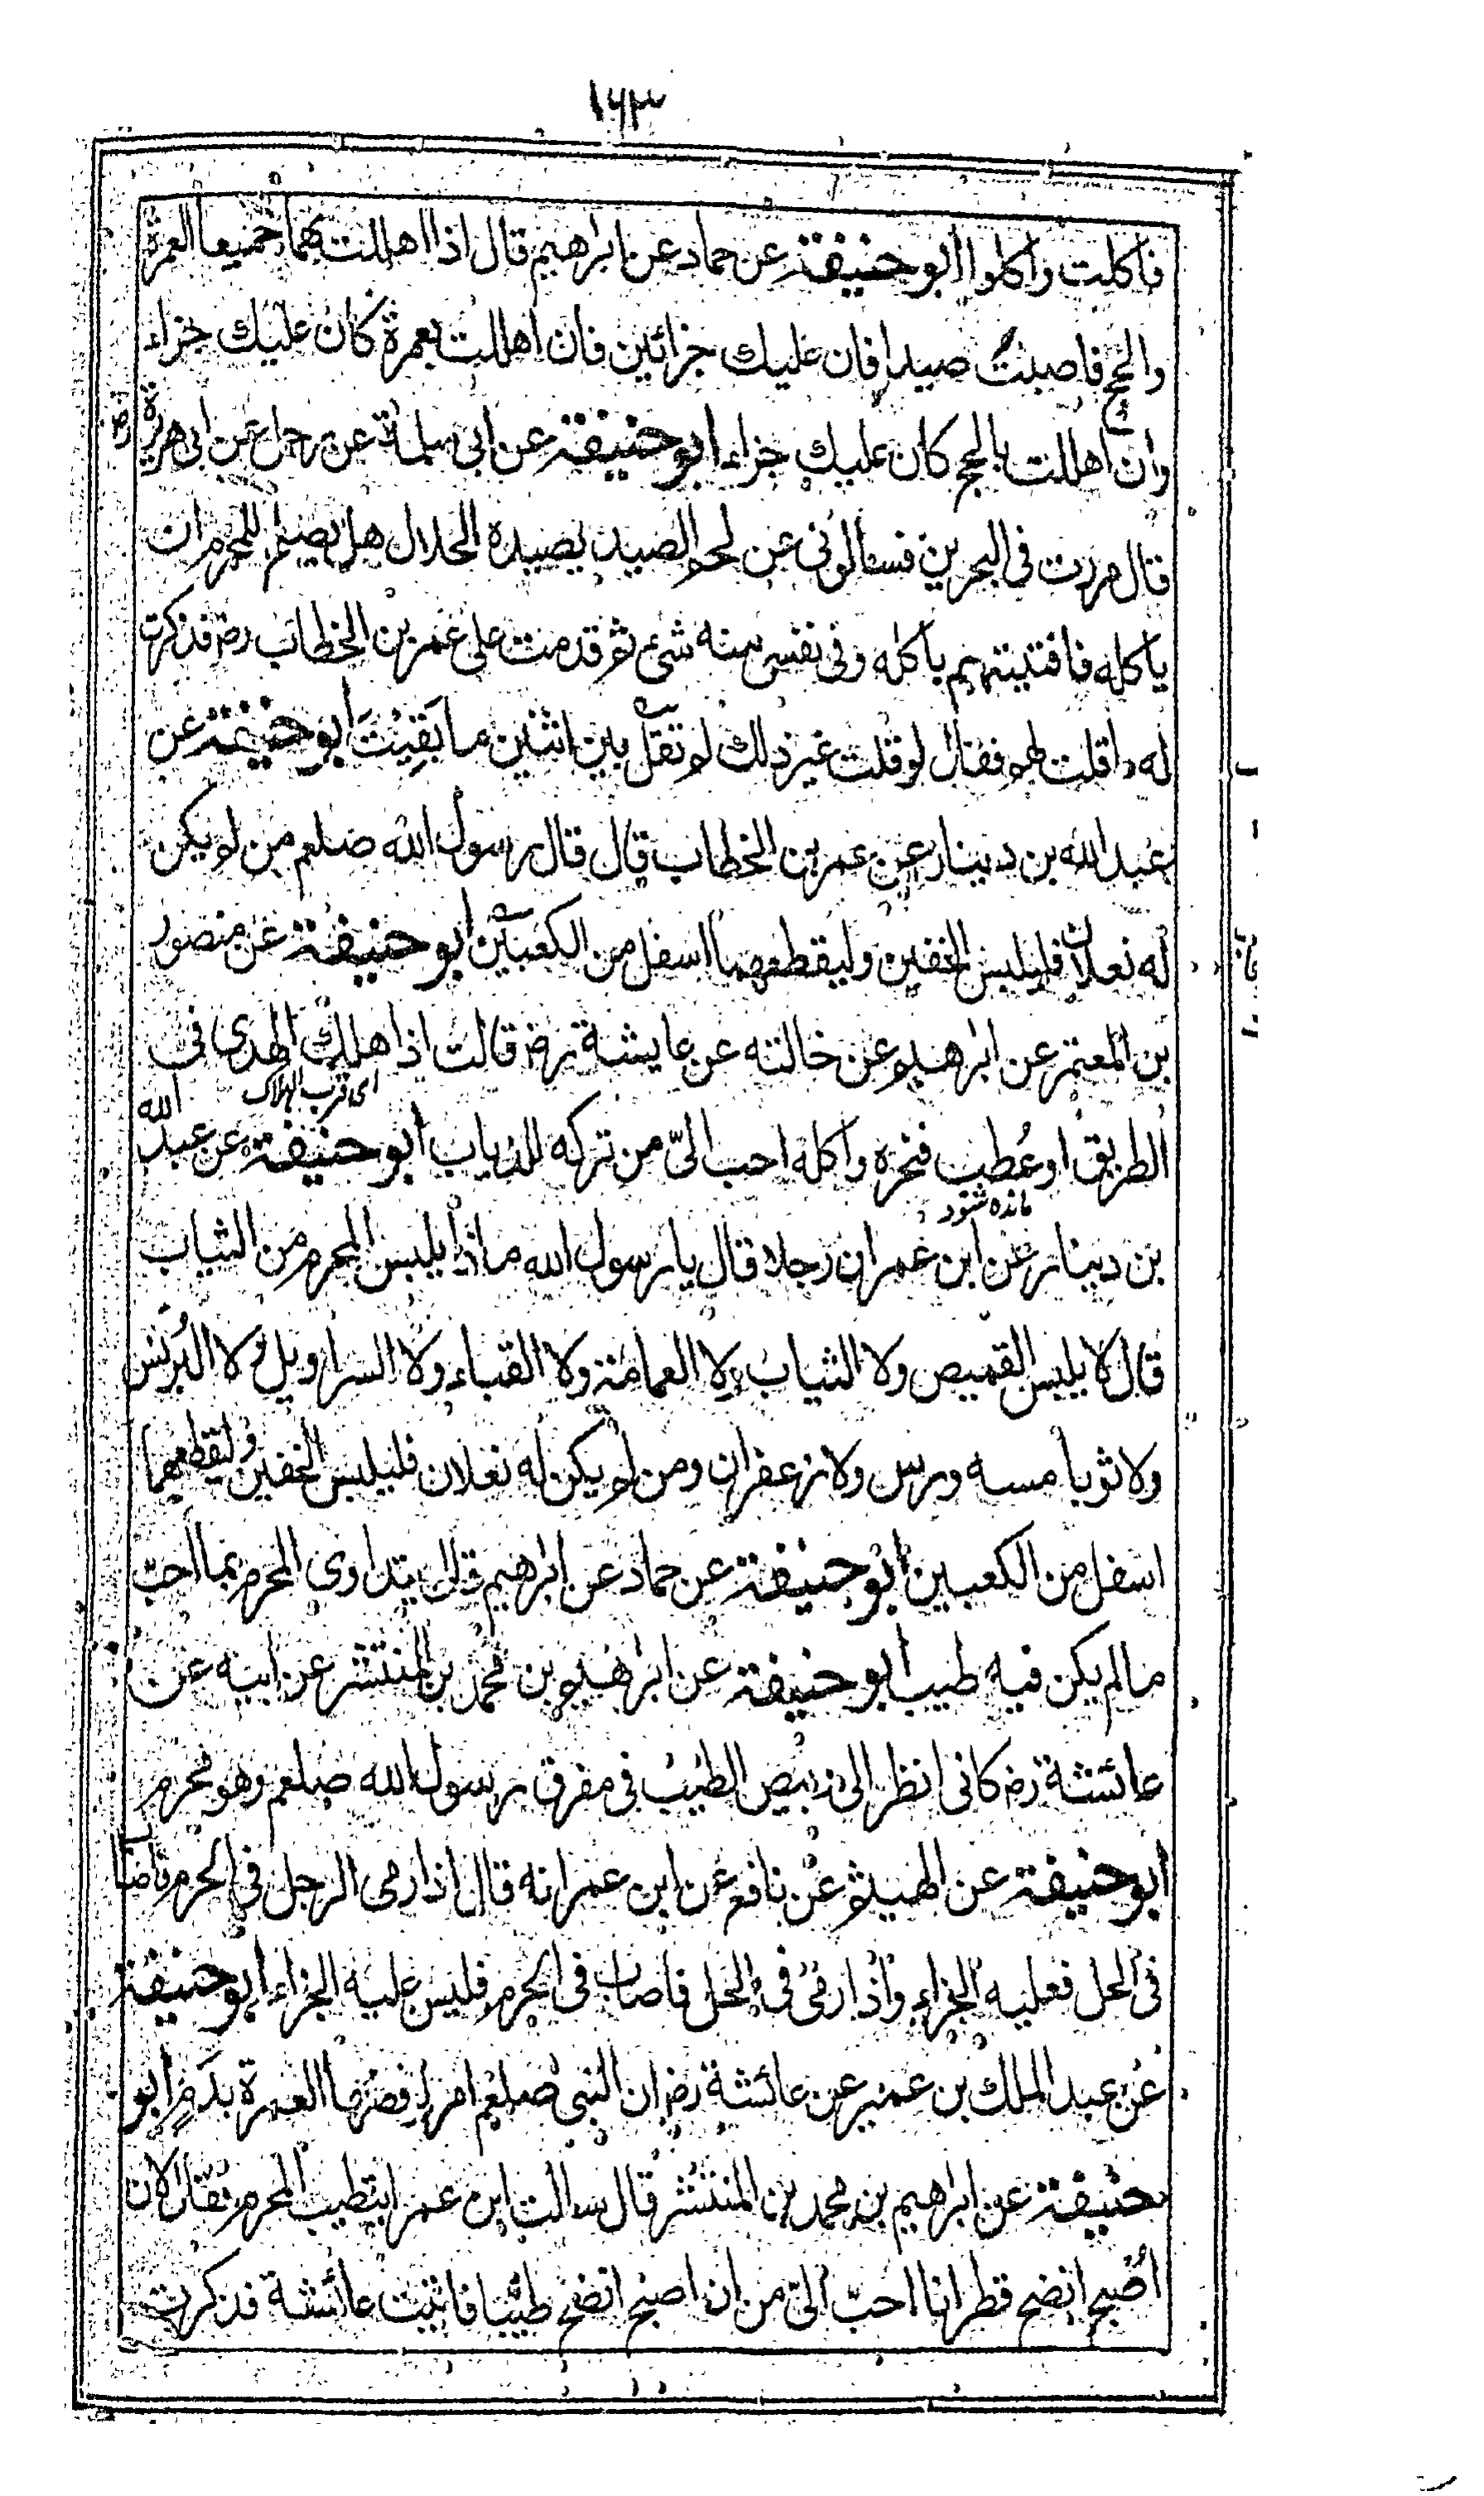 ۱۶۳
فاكلت واكلوا ابو حنيفة عن حماد عن ابراهيم قال اذا اهللت بهما جميعا العمرة
والحج فاصبت صيدا فان عليك جزائين فان اهللت بعمرة كان عليك جزاء
وان اهللت بالحج كان عليك جزاء ابو حنيفة عن ابى سلمة عن رجل عن ابى هريرة
قال مررت فى البحرين فسالونى عن لحم الصيد يصيده الحلال هل يصلح للمحرم ان
ياكله فافتيتهم باكله وفى نفسى منه شئ ثم قدمت على عمر بن الخطاب رض فذكرت
له ما قلت لهم فقال لو قلت غير ذلك لم تقل بين اثنين ما بَقِيْتَ ابو حنيفة عن
عبد الله بن دينار عن عمر بن الخطاب قال قال رسول الله صلعم من لم يكن
له نعلان فليلبس الخفين وليقطعهما اسفل من الكعبين ابو حنيفة عن منصور
بن المعتمر عن ابراهيم عن خالته عن عايشة رض قالت اذا هلك الهدى فى
اى قرب الهلاك
الطريق او عُطب فنحره واكله احب الىّ من تركه للذياب ابو حنيفة عن عبد الله
مانده شود
بن دينار عن ابن عمر ان رجلا قال يا رسول الله ماذا يلبس المحرم من الثياب
قال لا يلبس القميص ولا الثياب ولا العمامة ولا القباء ولا السراويل ولا البُرنس
ولا ثوبا مسه ورس ولا زعفران ومن لم يكن له نعلان فليلبس الخفين وليقطعهما
اسفل من الكعبين ابو حنيفة عن حماد عن ابراهيم قال يتداوى المحرم بما احبّ
مالم يكن فيه طيب ابو حنيفة عن ابراهيم بن محمد بن المنتشر عن ابيه عن
عائشة رض كانى انظر الى وبيص الطيب فى مفرق رسول الله صلعم وهو محرم
ابو حنيفة عن الهيثم عن نافع عن ابن عمر انه قال اذا رمى الرجل فى الحرم فاصاب
فى الحل فعليه الجزاء واذا رمى فى الحل فاصاب فى الحرم فليس عليه الجزاء ابو حنيفة
عن عبد الملك بن عمير عن عائشة رض ان النبى صلعم امر لرفضها العمرة بدمٍ ابو
حنيفة عن ابراهيم بن محمد بن المنتشر قال سالت ابن عمر ايتطيب المحرم فقال لان
اصبح انضح قطرانا احبّ الىّ من ان اصبح انضح طيبا فاتيت عائشة فذكرت